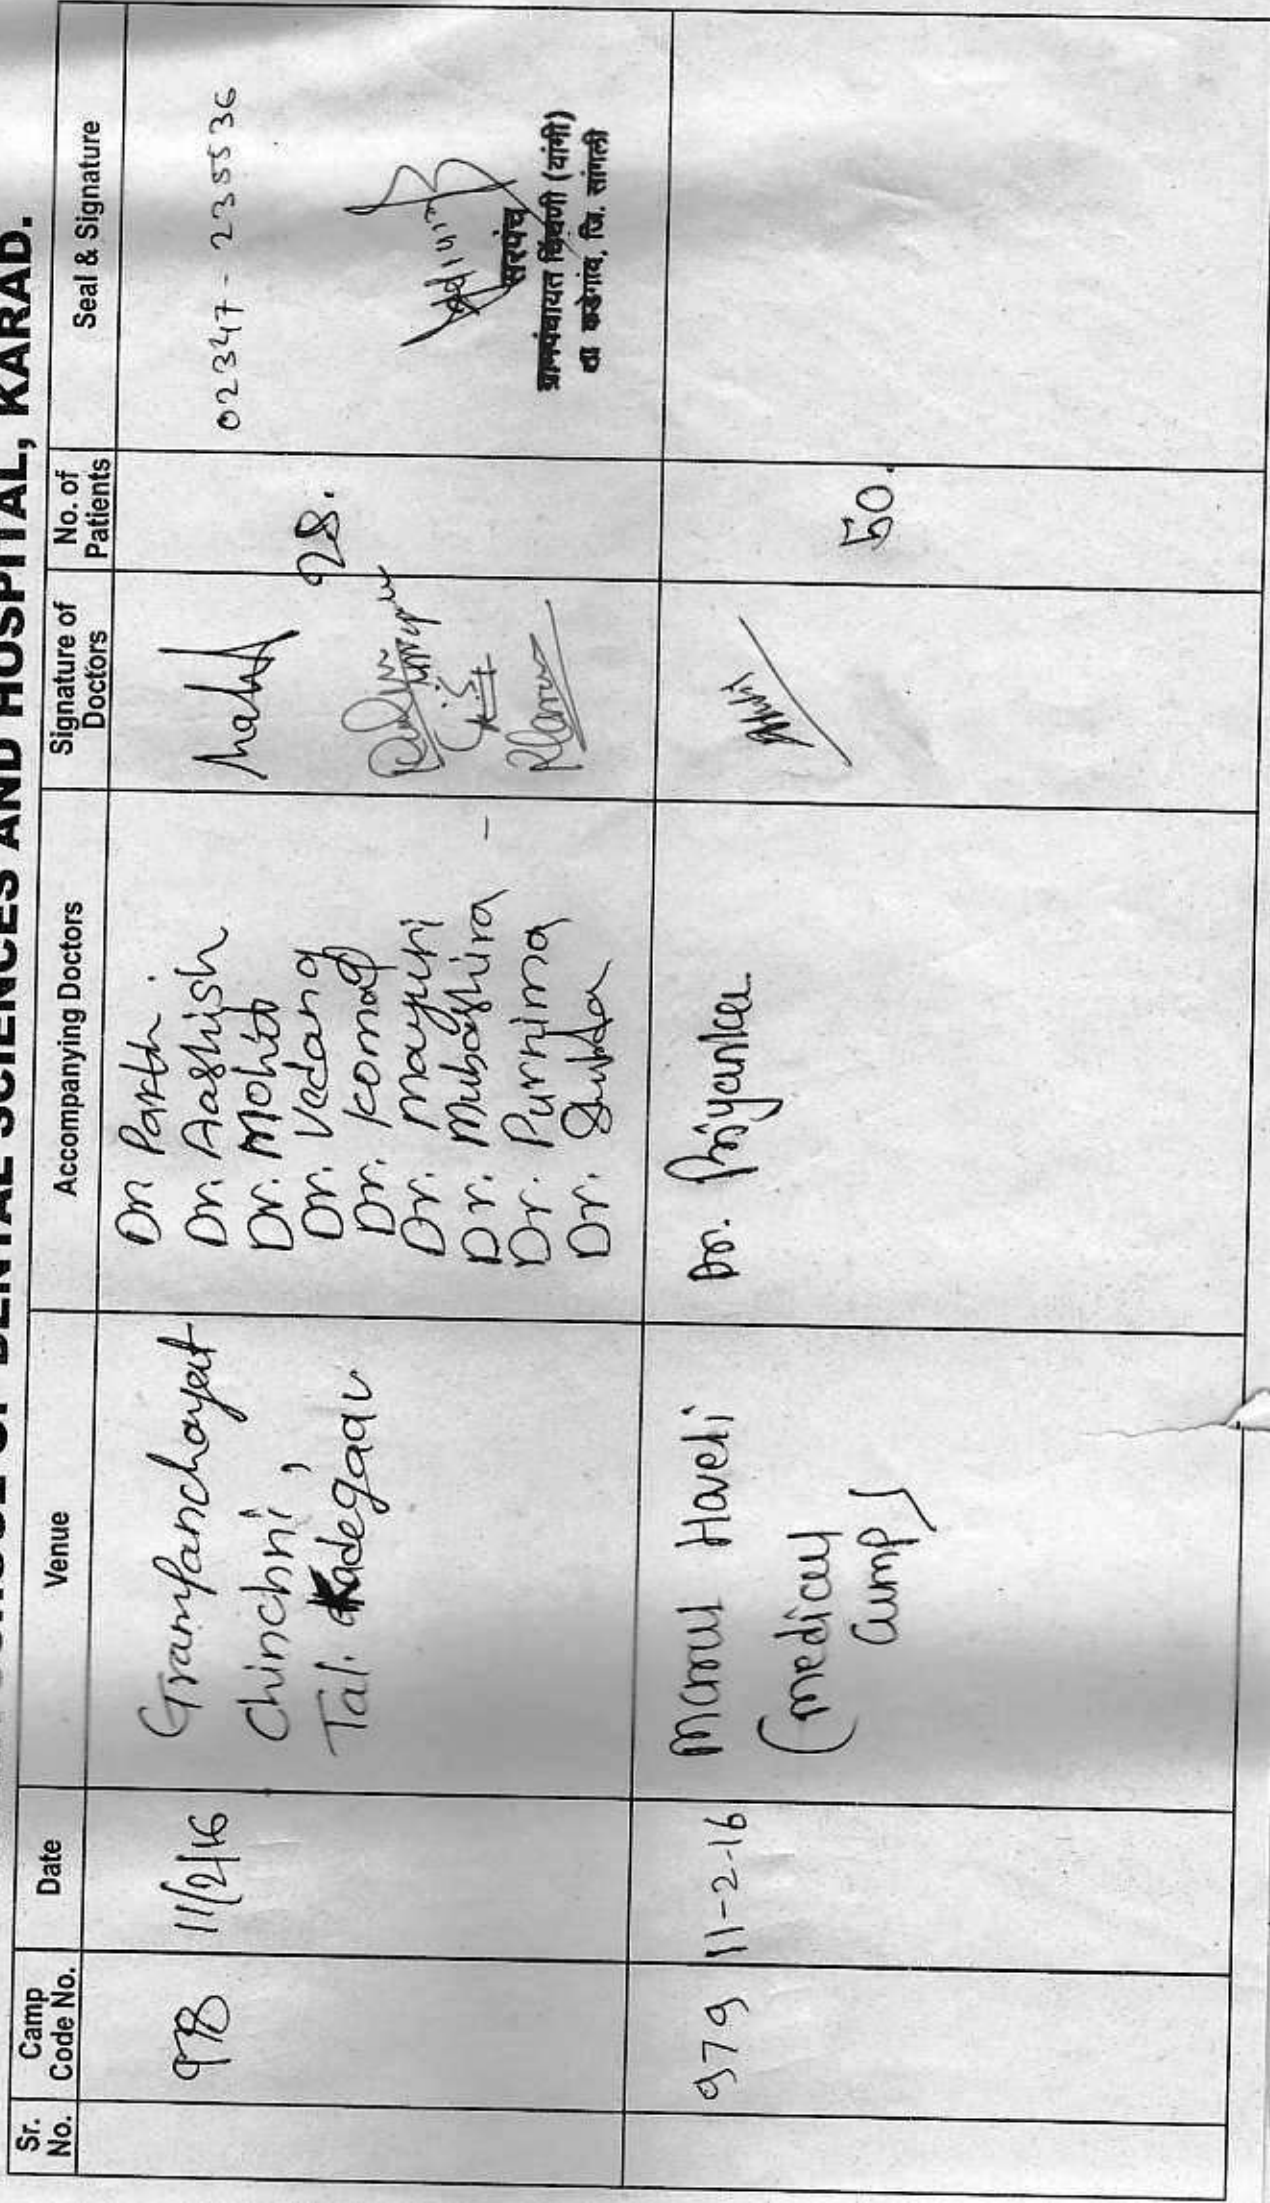 DENTAL SCIENCES AND HOSPITAL, KARAD.
Sr. No.
Camp Code No.
Date
Venue
Accompanying Doctors
Signature of Doctors
No. of Patients
Seal & Signature
978
11/2/16
Grampanchayat
Chinchni,
Tal. Kadegaav
Dr. Parth.
Dr. Aashish
Dr. Mohit
Dr. Vedang
Dr. Komal
Dr. Mayuri
Dr. Mubashira -
Dr. Purnima
Dr. Shubda
28.
02347 - 235536
सरपंच
ग्रामपंचायत चिंचणी (वांगी)
ता कडेगांव, जि. सांगली
979
11-2-16
Maroul Haveli
(medical
camp)
Dr. Priyanka
50.